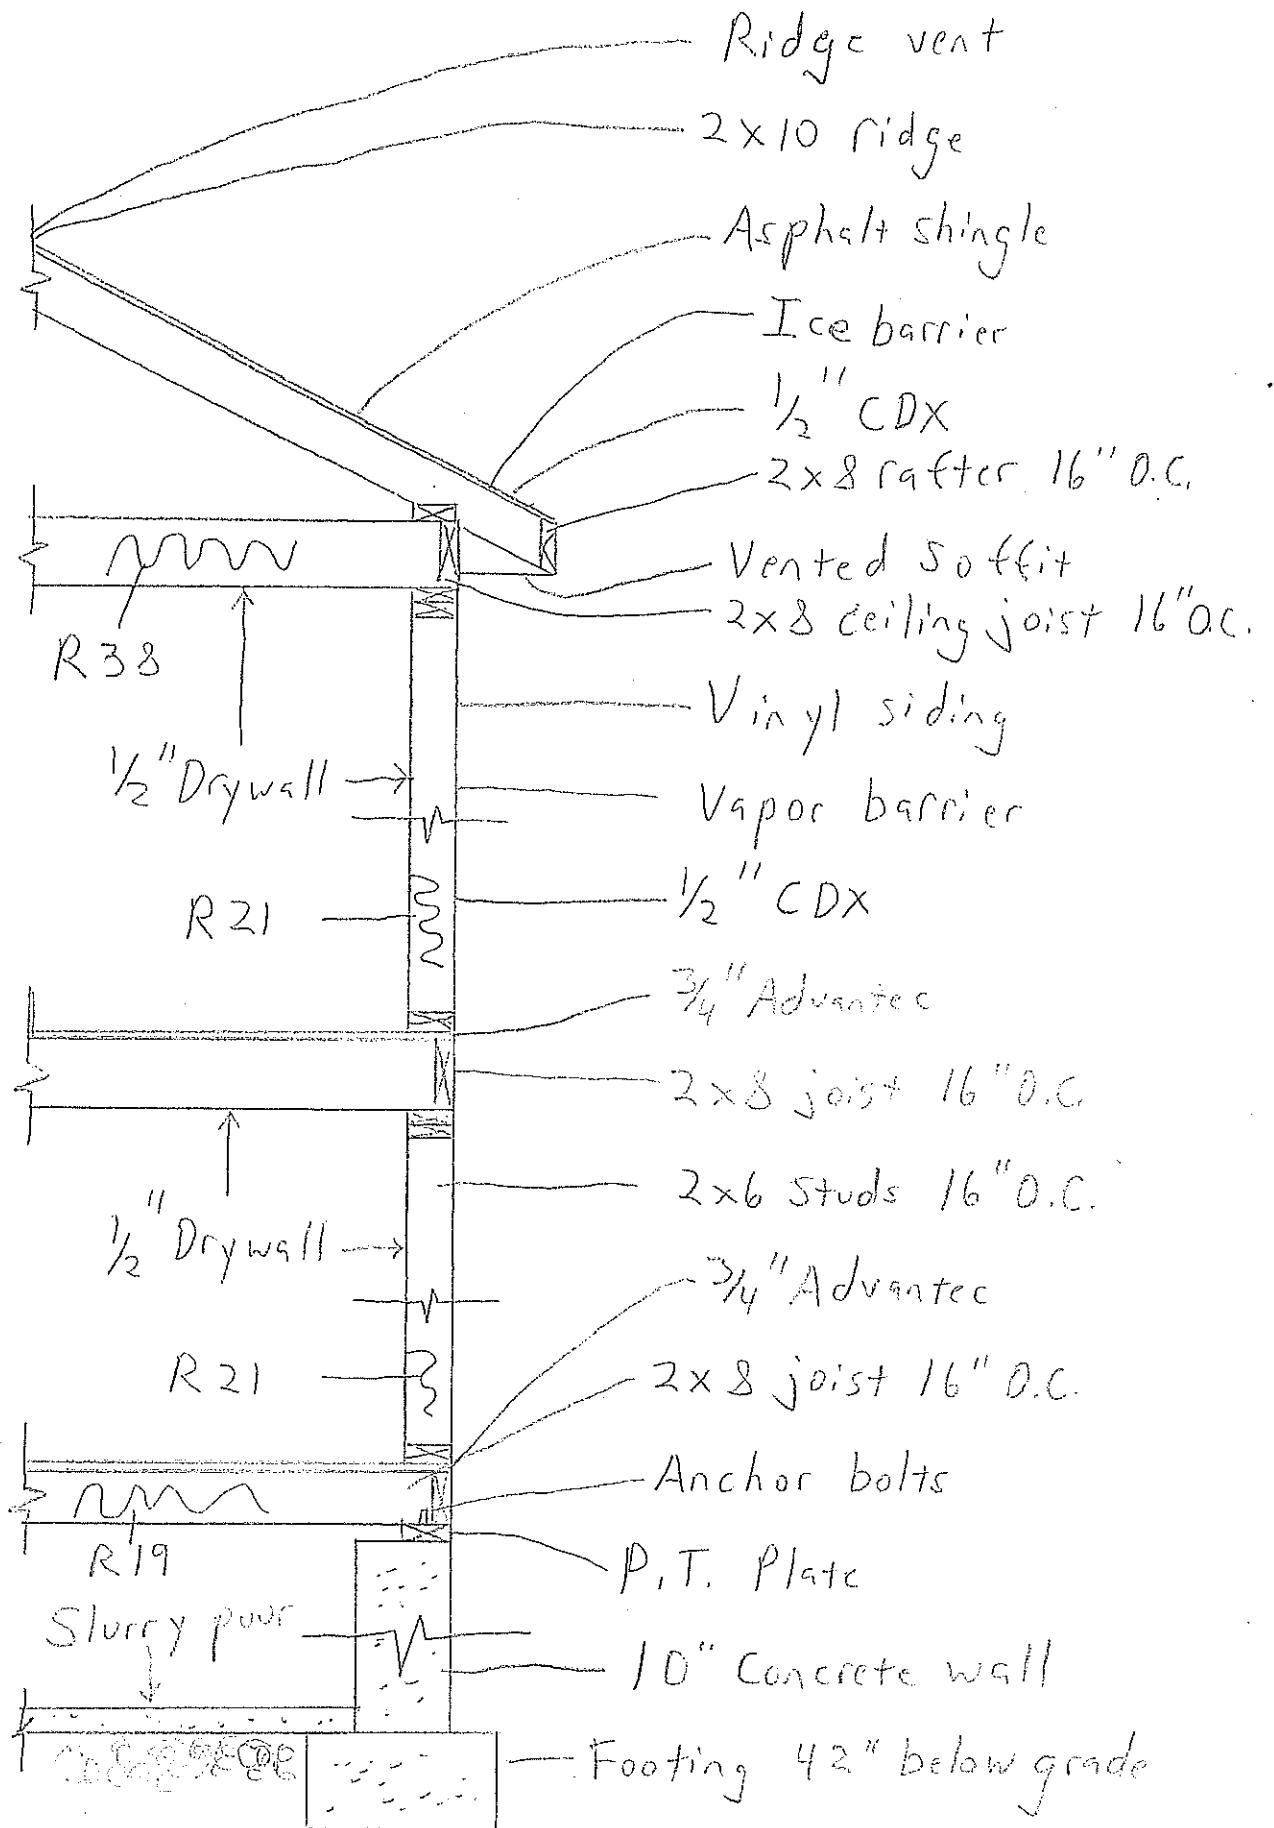 Ridge vent
2x10 ridge
Asphalt shingle
Ice barrier
1/2" CDX
2x8 rafter 16" O.C.
Vented Soffit
2x8 ceiling joist 16" O.C.
R38
Vinyl siding
1/2" Drywall
Vapor barrier
R21
1/2" CDX
3/4" Advantec
2x8 joist 16" O.C.
2x6 Studs 16" O.C.
1/2" Drywall
3/4" Advantec
R21
2x8 joist 16" O.C.
Anchor bolts
R19
P.T. Plate
Slurry pour
10" Concrete wall
Footing 42" below grade